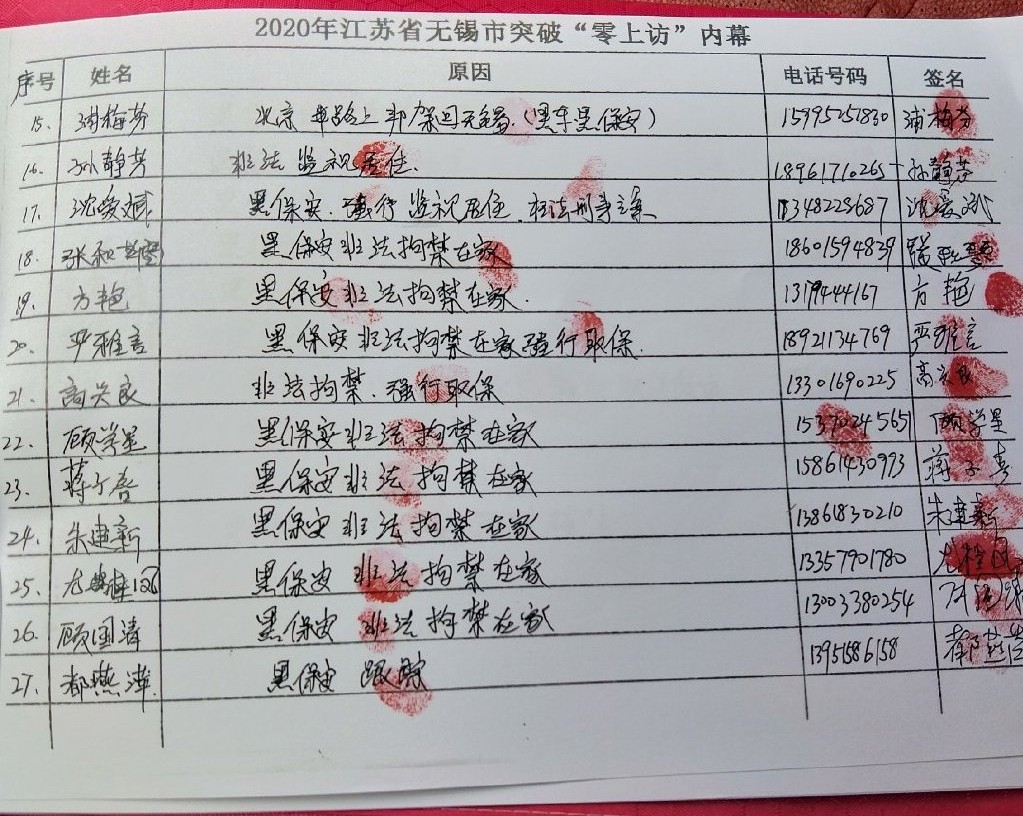 2020年江苏省无锡市突破“零上访”内幕
序号 姓名 原因 电话号码 签名
15. 浦梅芬 北京 半路上 绑架回无锡.(黑车黑保安) 15995251830 浦梅芬
16. 孙静芳 非法 监视居住. 18961710265 孙静芳
17. 沈爱斌 黑保安. 强行 监视居住. 枉法刑事立案 沈爱斌
18. 张和 黑保安 非法拘禁在家 18601594839
19. 方艳 黑保安 非法拘禁在家. 方艳
20. 严雅言 黑保安 非法拘禁在家 强行取保. 18921134769 严雅言
21. 高兴良 非法拘禁. 强行取保 13301690225 高兴良
22. 顾学星 黑保安非法拘禁在家 15370245651 顾学星
23. 蒋子 黑保安非法拘禁在家 15861430993 蒋子
24. 朱建新 黑保安 非法拘禁在家 13861830210 朱建新
25. 尤桂凤 黑保安 非法拘禁在家 13357901780 尤桂凤
26. 顾国清 黑保安 非法拘禁在家 13003380254 顾国清
27. 都燕萍 黑保安 跟踪 13951586158